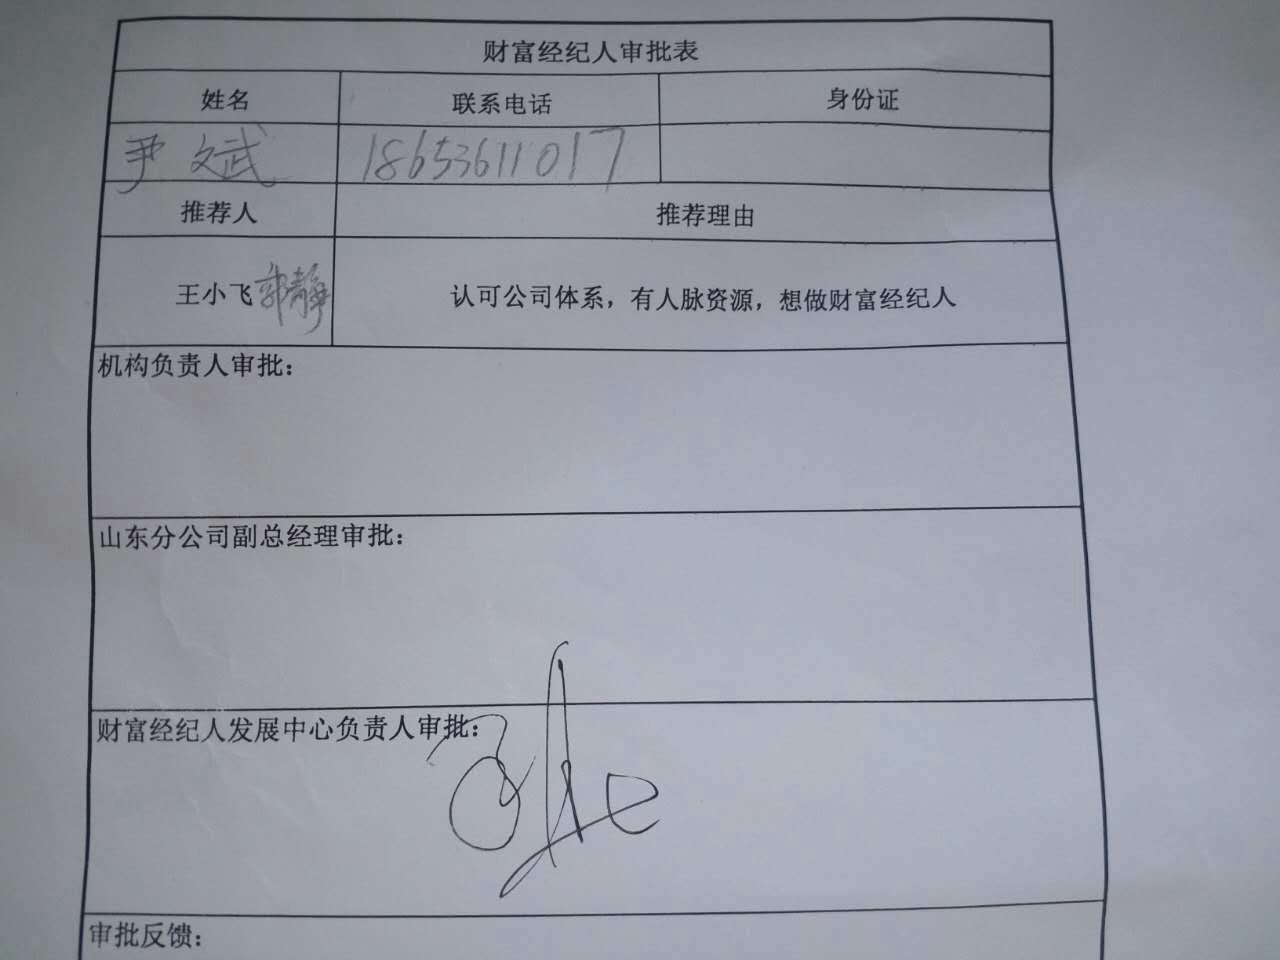 财富经纪人审批表
姓名 联系电话 身份证
尹文武 18653611017
推荐人 推荐理由
王小飞 郭静 认可公司体系，有人脉资源，想做财富经纪人
机构负责人审批：
山东分公司副总经理审批：
财富经纪人发展中心负责人审批：
审批反馈：